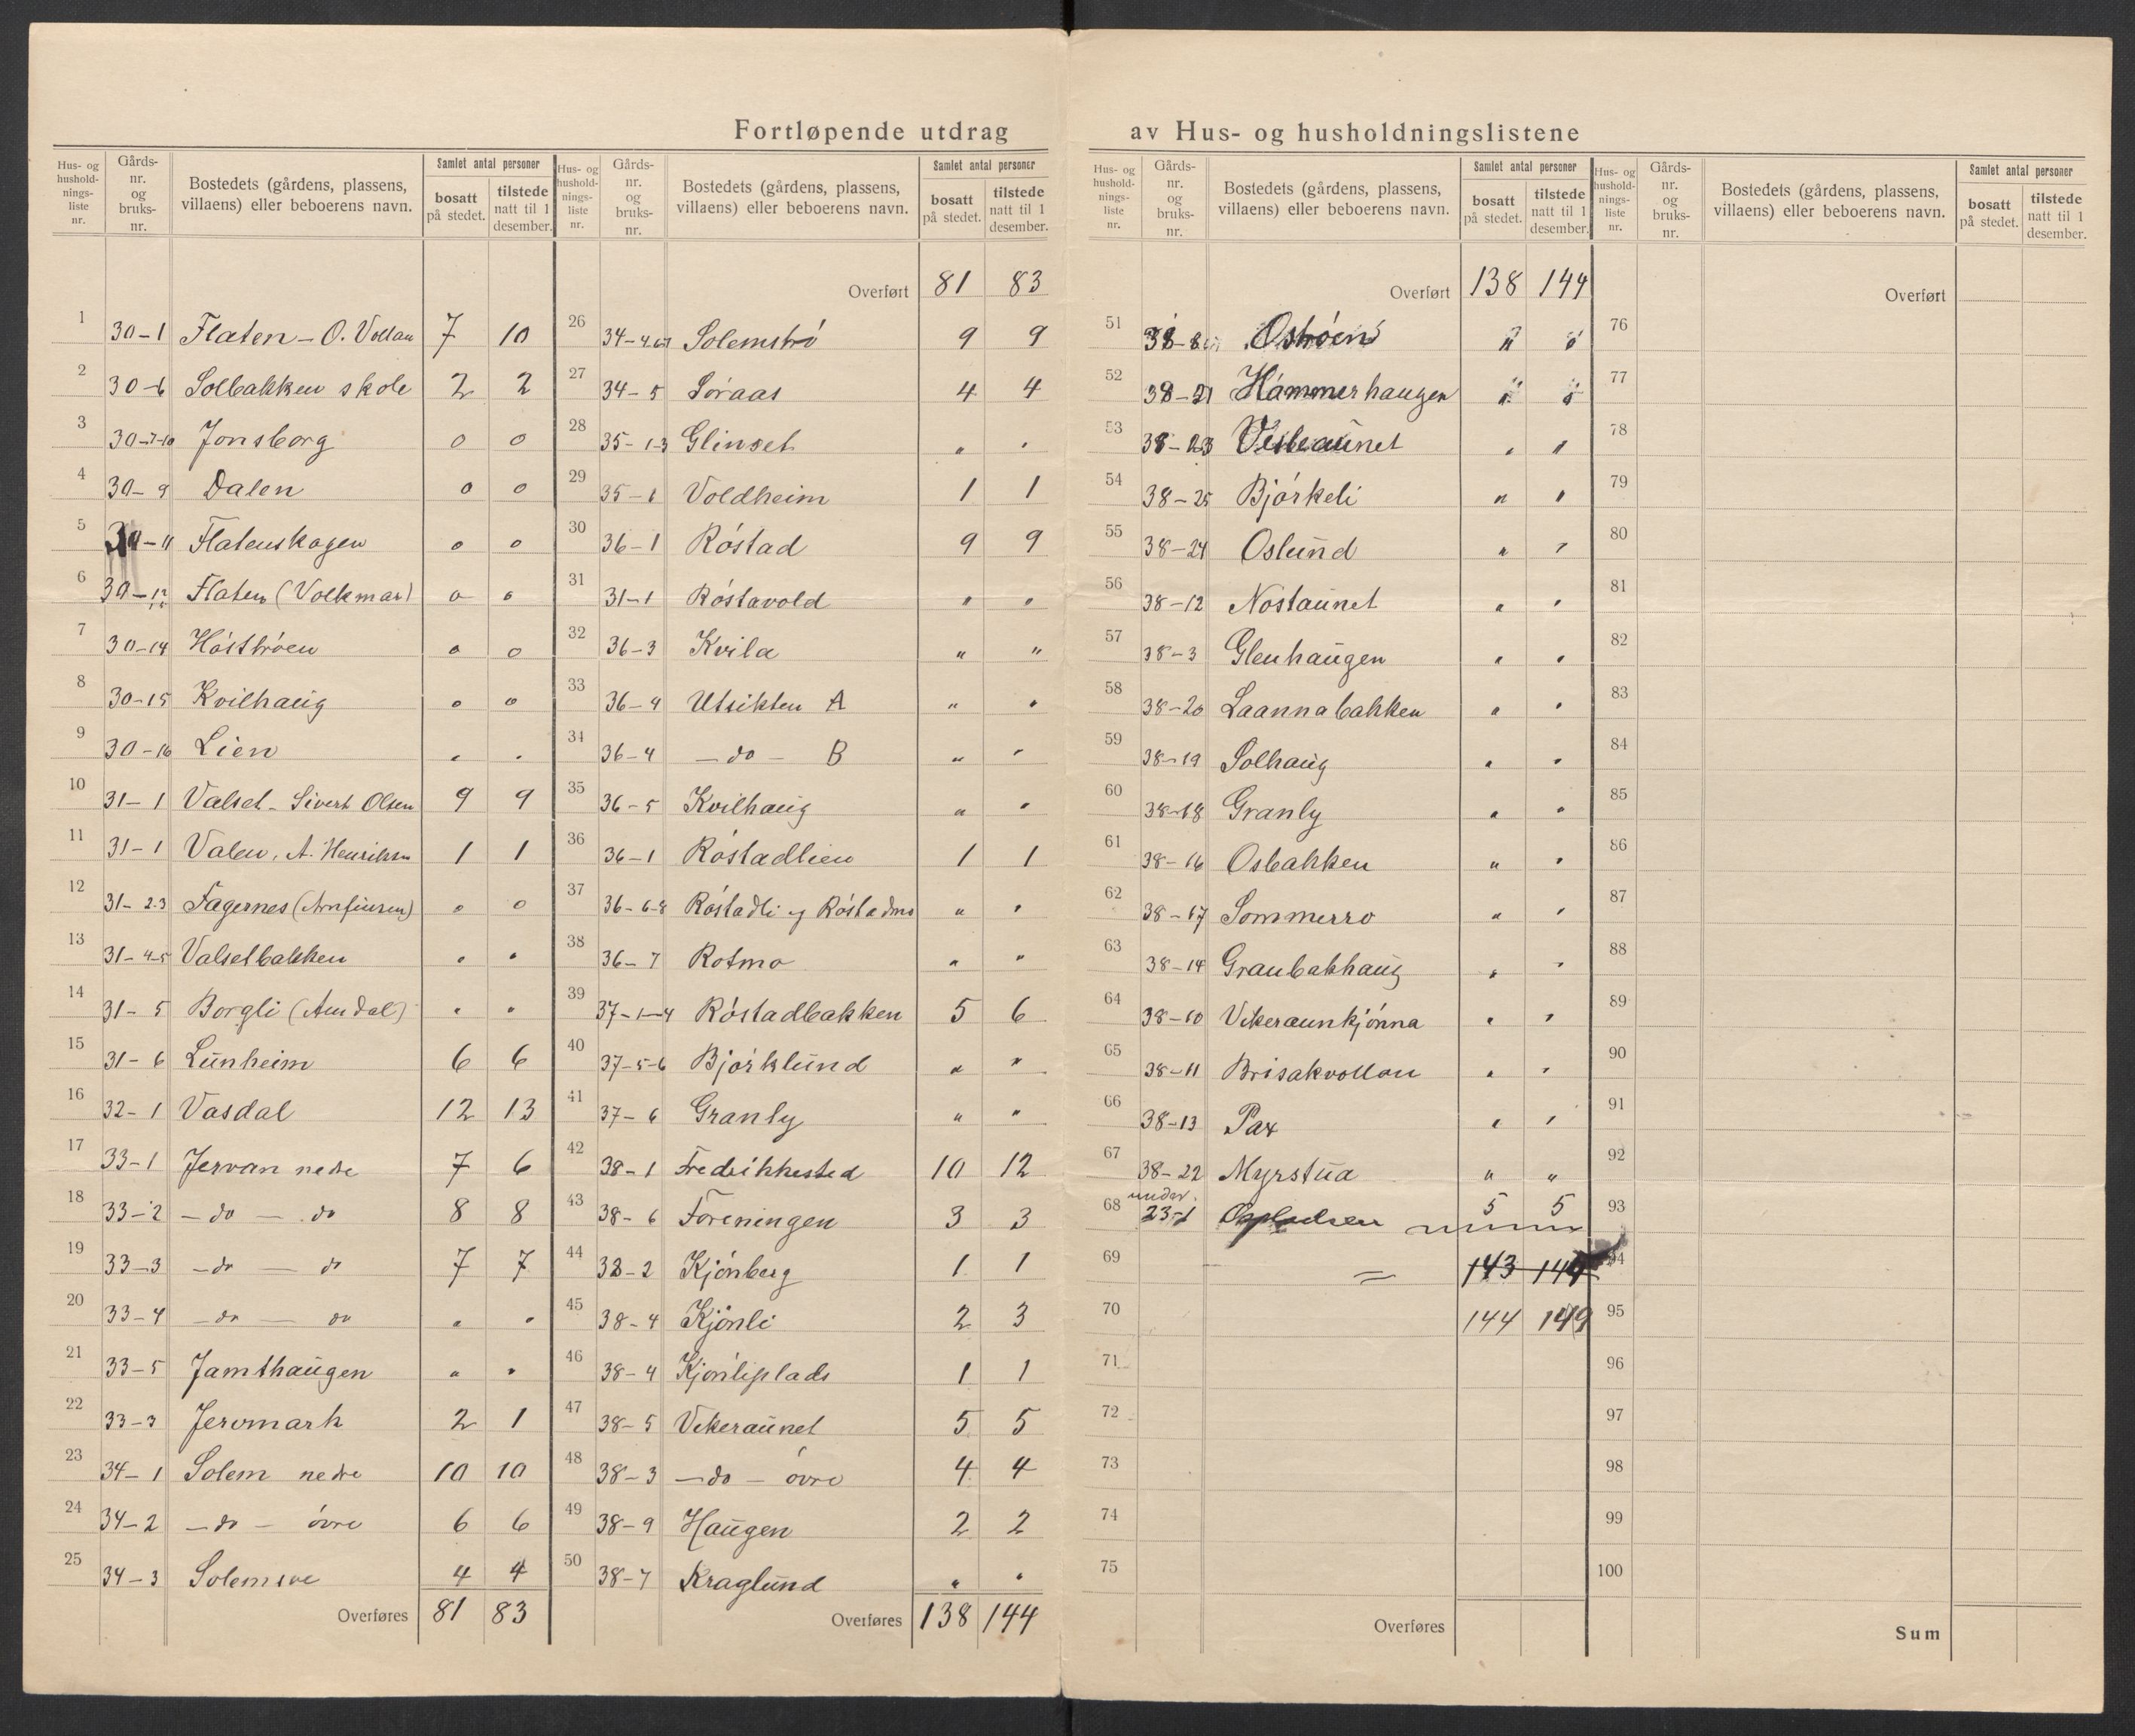 Fortløpende utdrag av Hus- og husholdningslistene
Hus- og hushold-nings-liste nr. Gårds-nr. og bruks-nr. Bostedets (gårdens, plassens, villaens) eller beboerens navn. Samlet antal personer bosatt på stedet. tilstede natt til 1 desember.
1 30-1 Flaten - O. Vollan 7 10
2 30-6 Solbakken skole 2 2
3 30-7-10 Jonsborg 0 0
4 30-9 Dalen 0 0
5 30-11 Flatenskogen 0 0
6 30-12 Flaten (Volkmar) 0 0
7 30-14 Hóstróen 0 0
8 30-15 Kvilhaug 0 0
9 30-16 Lien " "
10 31-1 Valset - Sivert Olsen 9 9
11 31-1 Valen, A. Henriksen 1 1
12 31-2.3 Fagernes (Arnfinsen) 0 0
13 31-4-5 Valsetbakken " "
14 31-5 Borgli (Amdal) " "
15 31-6 Lunheim 6 6
16 32-1 Vasdal 12 13
17 33-1 Jervan nedre 7 6
18 33-2 - do - do 8 8
19 33-3 - do - do 7 7
20 33-4 - do - do " "
21 33-5 Jamthaugen " "
22 33-3 Jervmark 2 1
23 34-1 Solem nedre 10 10
24 34-2 - do - óvre 6 6
25 34-3 Solemsve 4 4
Overføres 81 83
Hus- og hushold-nings-liste nr. Gårds-nr. og bruks-nr. Bostedets (gårdens, plassens, villaens) eller beboerens navn. Samlet antal personer bosatt på stedet. tilstede natt til 1 desember.
Overført 81 83
26 34-4.6.7 Solemstró 9 9
27 34-5 Sóraas 4 4
28 35-1-3 Glinset " "
29 35-1 Voldheim 1 1
30 36-1 Róstad 9 9
31 31-1 Róstavold " "
32 36-3 Kvila " "
33 36-4 Utsikten A " "
34 36-4 - do - B " "
35 36-5 Kvilhaug " "
36 36-1 Róstadlien 1 1
37 36-6-8 Róstadli og Róstadmo " "
38 36-7 Rotmo " "
39 37-1-4 Róstadbakken 5 6
40 37-5-6 Bjórklund " "
41 37-6 Granly " "
42 38-1 Fredrikkested 10 12
43 38-6 Foreningen 3 3
44 38-2 Kjónberg 1 1
45 38-4 Kjónli 2 3
46 38-4 Kjónliplads 1 1
47 38-5 Vikeraunet 5 5
48 38-3 - do - óvre 4 4
49 38-9 Haugen 2 2
50 38-7 Kraglund " "
Overføres 138 144
Hus- og hushold-nings-liste nr. Gårds-nr. og bruks-nr. Bostedets (gårdens, plassens, villaens) eller beboerens navn. Samlet antal personer bosatt på stedet. tilstede natt til 1 desember.
Overført 138 144
51 38-8 Ostróen " "
52 38-21 Hammerhaugen " "
53 38-23 Vesteaunet " "
54 38-25 Bjórkeli " "
55 38-24 Oslund " "
56 38-12 Nóstaunet " "
57 38-3 Glenhaugen " "
58 38-20 Laannabakken " "
59 38-19 Solhaug " "
60 38-18 Granly " "
61 38-16 Osbakken " "
62 38-17 Sommerro " "
63 38-14 Graubakhaug " "
64 38-10 Vikeraunkjónna " "
65 38-11 Brisakvollan " "
66 38-13 Pax " "
67 38-22 Myrstua " "
68 under. 23-1 Ospladsen 5 5
69 = 143 149
70 144 149
71
72
73
74
75
Overføres
Hus- og hushold-nings-liste nr. Gårds-nr. og bruks-nr. Bostedets (gårdens, plassens, villaens) eller beboerens navn. Samlet antal personer bosatt på stedet. tilstede natt til 1 desember.
Overført
76
77
78
79
80
81
82
83
84
85
86
87
88
89
90
91
92
93
94
95
96
97
98
99
100
Sum